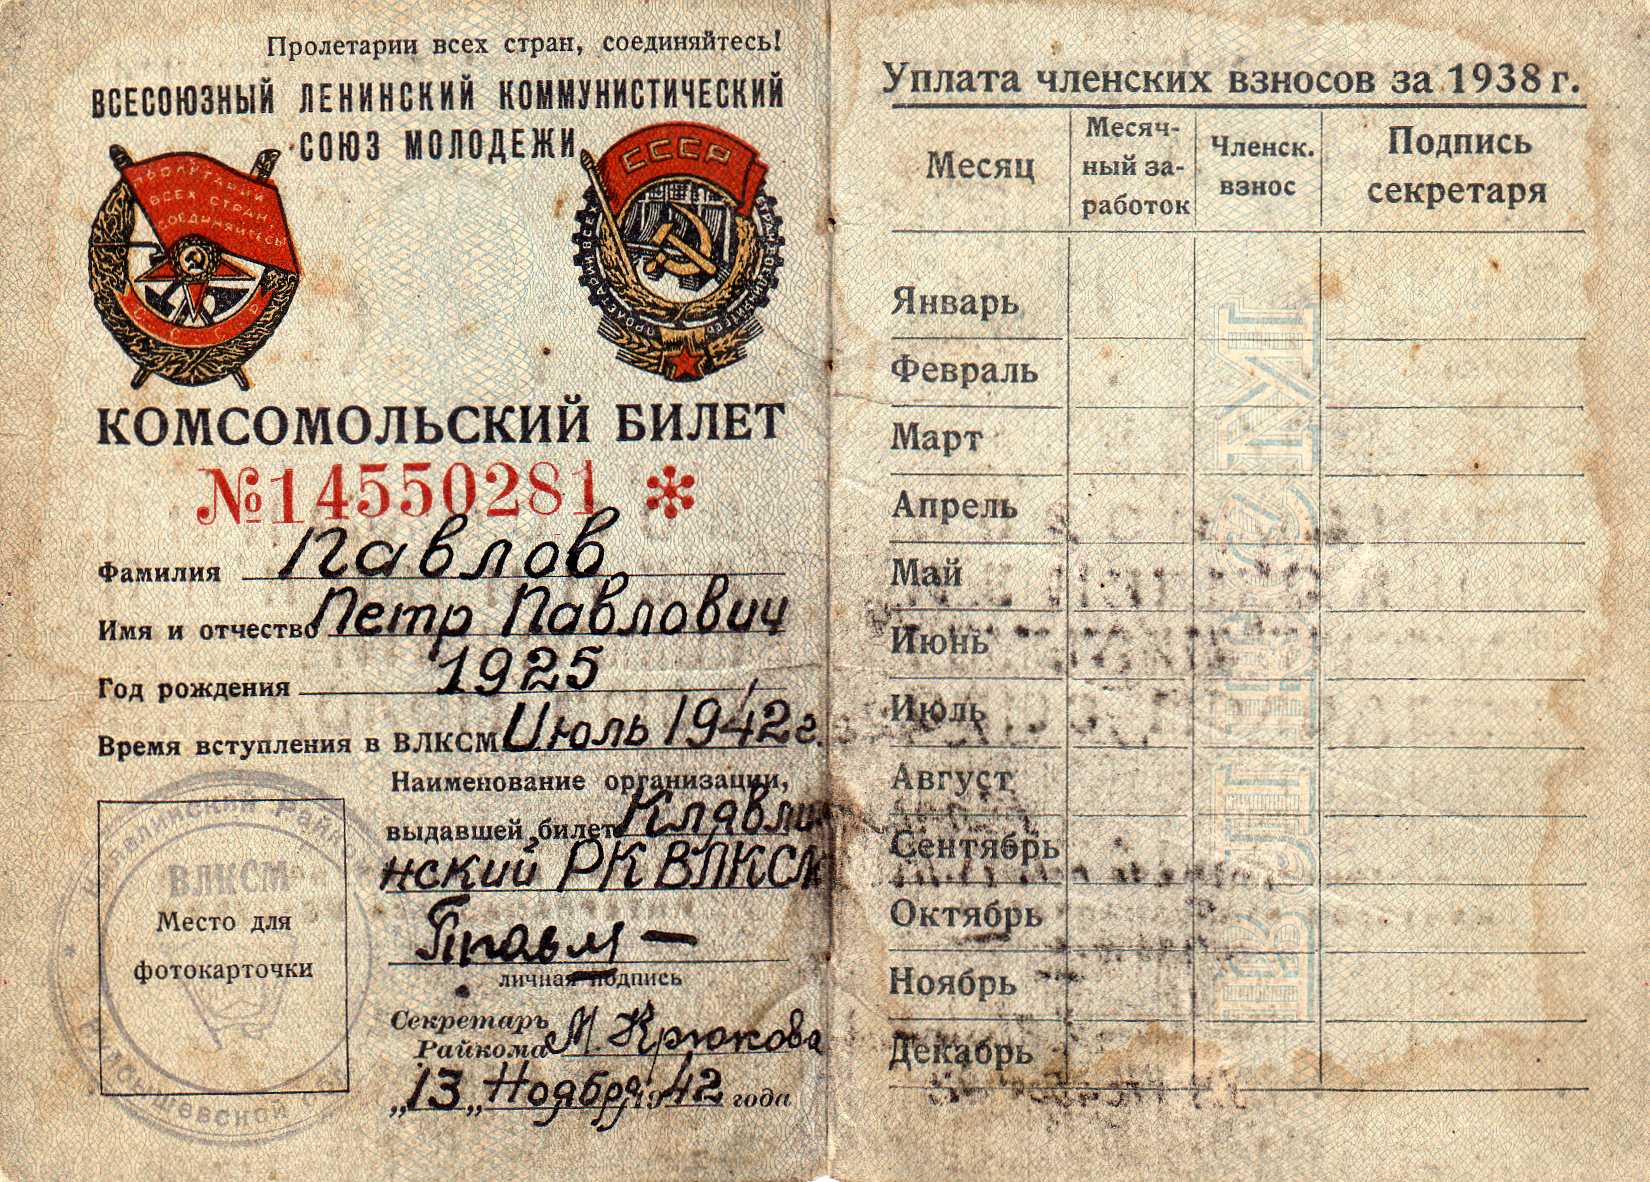 Пролетарии всех стран, соединяйтесь!
ВСЕСОЮЗНЫЙ ЛЕНИНСКИЙ КОММУНИСТИЧЕСКИЙ
СОЮЗ МОЛОДЕЖИ
ПРОЛЕТАРИИ
ВСЕХ СТРАН,
СОЕДИНЯЙТЕСЬ
СССР
СССР
ПРОЛЕТАРИИ ВСЕХ СТРАН СОЕДИНЯЙТЕСЬ
КОМСОМОЛЬСКИЙ БИЛЕТ
№14550281 *
Фамилия Павлов
Имя и отчество Петр Павлович
Год рождения 1925
Время вступления в ВЛКСМ Июль 1942 г.
Наименование организации,
выдавшей билет Клявли
нский РК ВЛКСМ
ВЛКСМ
Место для
фотокарточки
личная подпись
Секретарь
Райкома М. Крюкова
„13„ Ноября 1942 года
Уплата членских взносов за 1938 г.
Месяц
Месяч-
ный за-
работок
Членск.
взнос
Подпись
секретаря
Январь
Февраль
Март
Апрель
Май
Июнь
Июль
Август
Сентябрь
Октябрь
Ноябрь
Декабрь